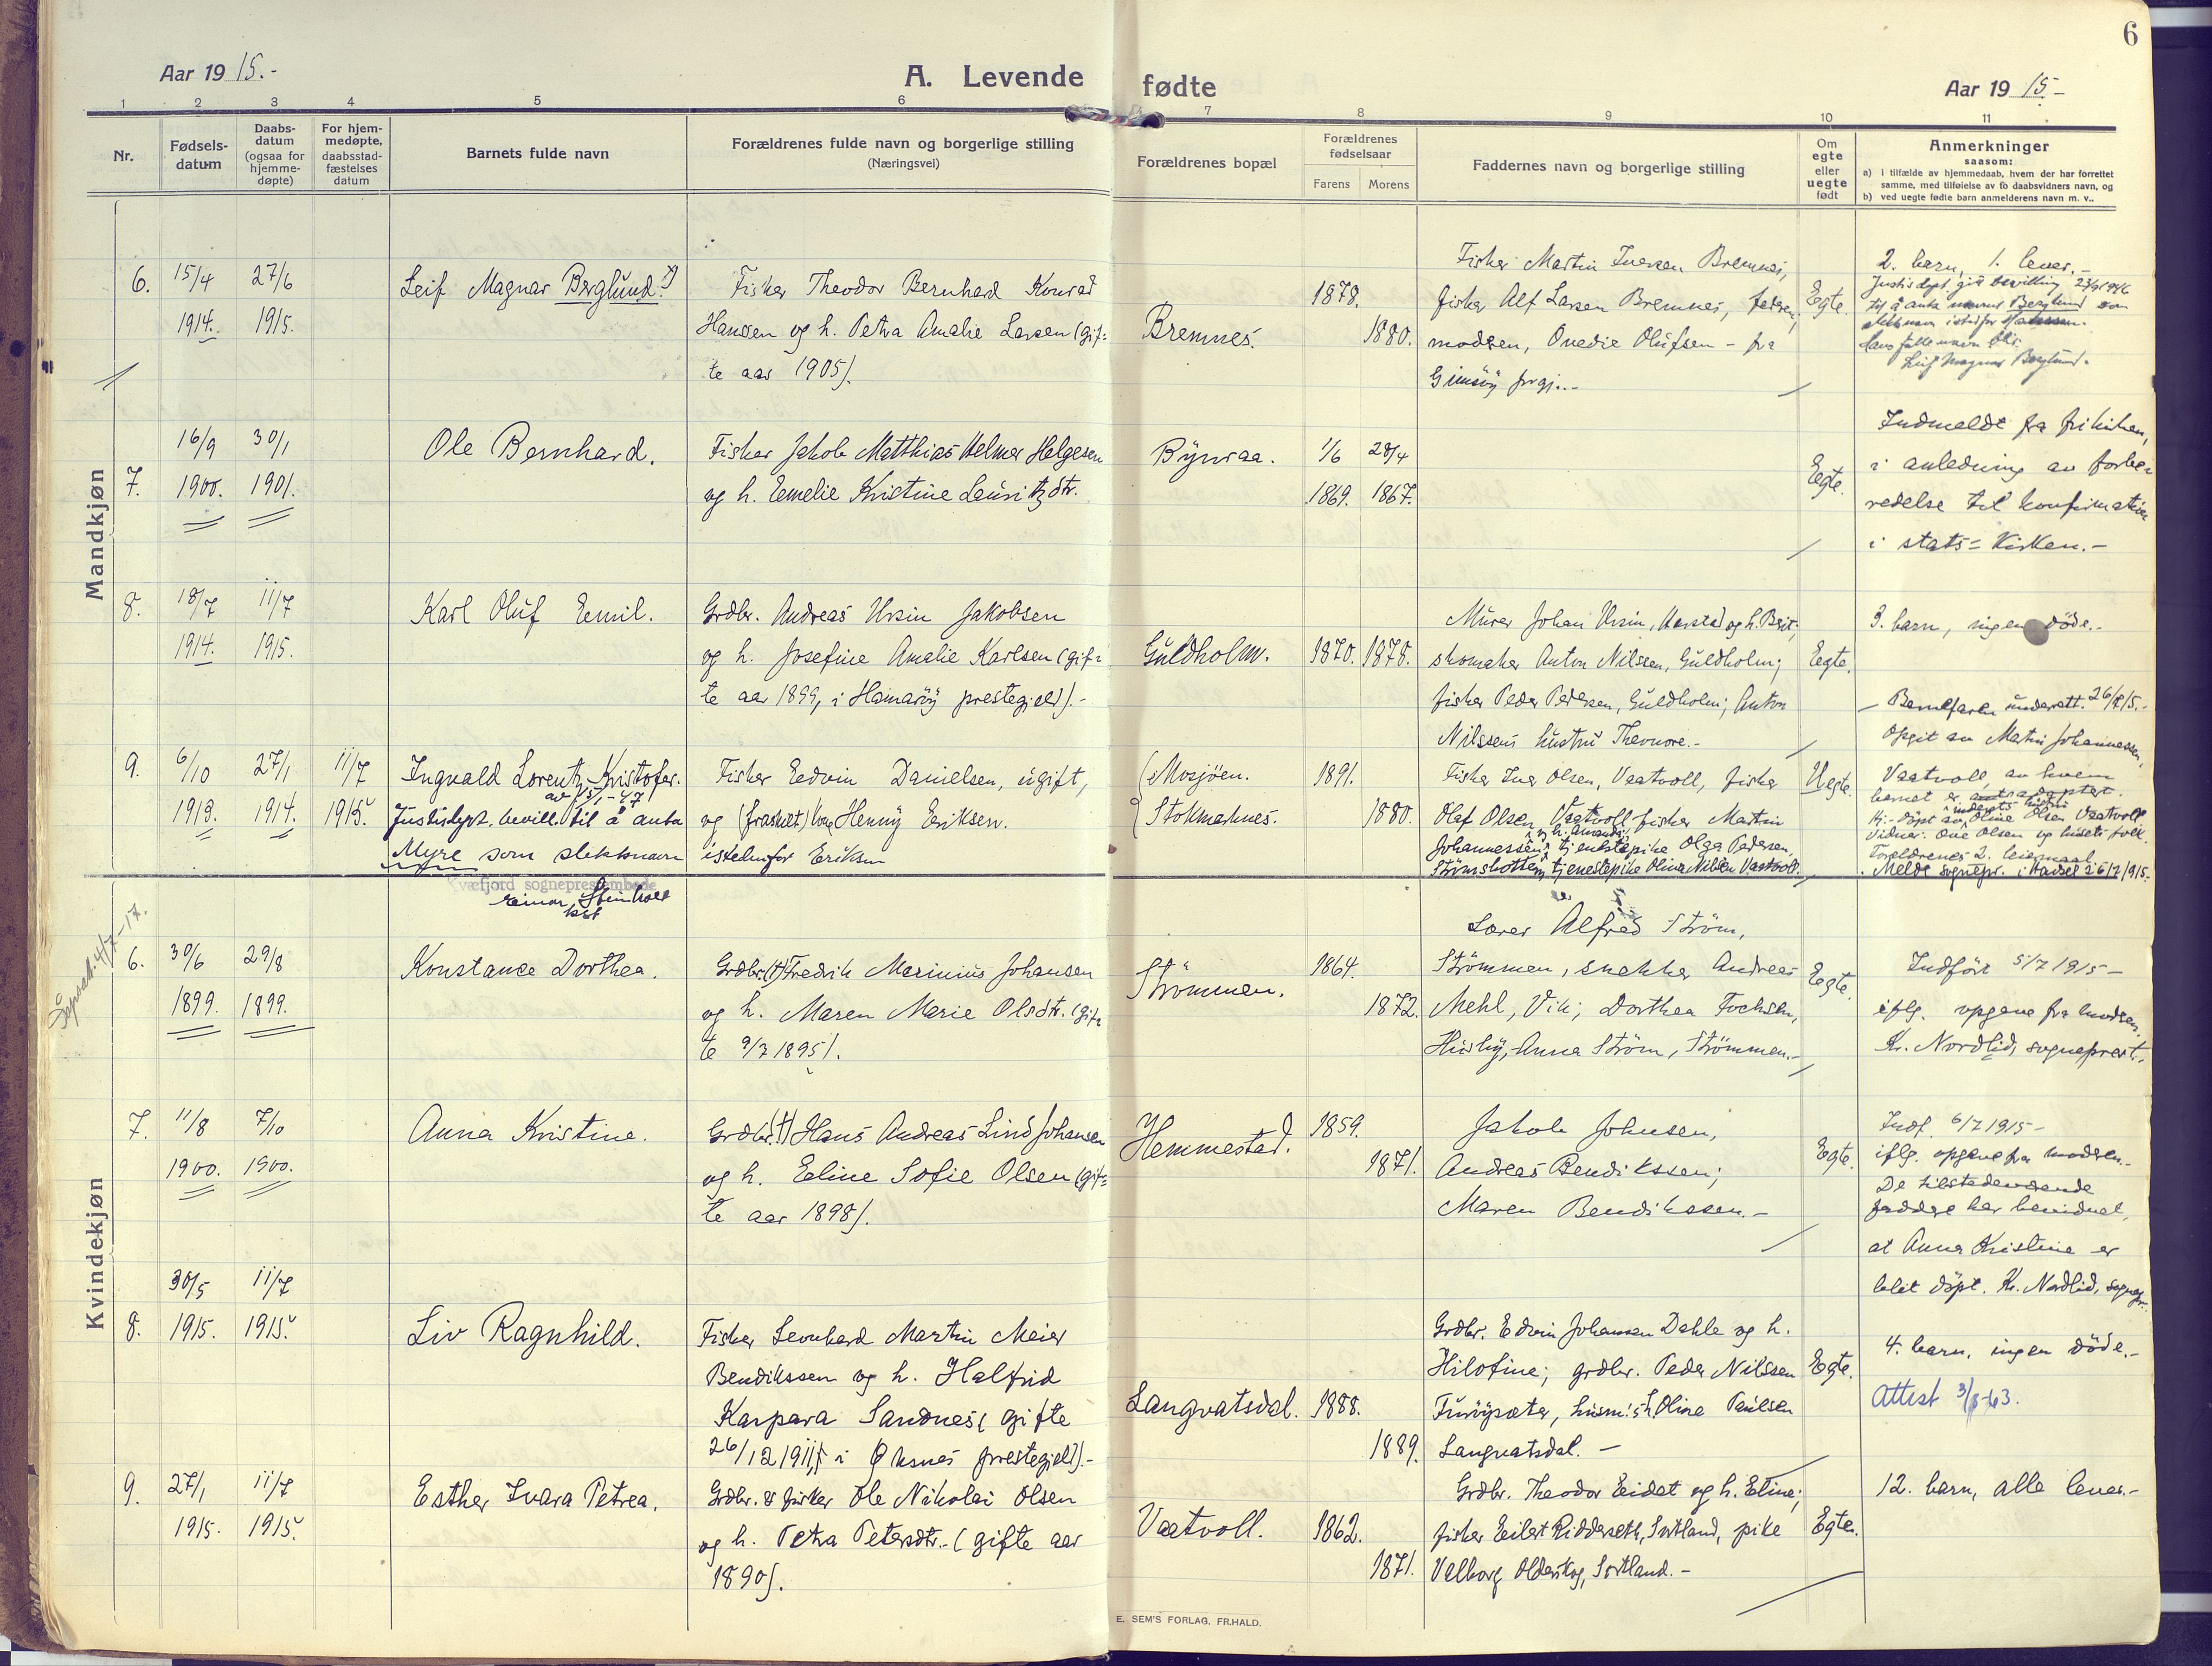 6
Aar 1915.-
A. Levende fødte
Aar 1915-
1 2 3 4 5 6 7 8 9 10 11
Nr.
Fødsels-
datum
Daabs-
datum
(ogsaa for
hjemme-
døpte)
For hjem-
medøpte,
daabsstad-
fæstelses
datum
Barnets fulde navn
Forældrenes fulde navn og borgerlige stilling
(Næringsvei)
Forældrenes bopæl
Forældrenes
fødselsaar
Farens Morens
Faddernes navn og borgerlige stilling
Om
egte
eller
uegte
født
Anmerkninger
saasom:
a) i tilfælde av hjemmedaab, hvem der har forrettet
samme, med tilføielse av to daabsvidners navn, og
b) ved uegte fødte barn anmelderens navn m. v..
Mandkjøn
6.
15/4
1914.
27/6
1915.
Leif Magnar Berglund.
Fisker Theodor Bernhard Konrad
Hansen og h. Petra Amalie Larsen (gif-
te aar 1905).
Bremnes.
1878.
1880.
Fisker Martin Iversen Bremnes,
fisker Alf Larsen Bremnes, faderen,
moderen, Ovedie Olufsen - fra
Gimsöy prgj..-
Egte.
2. barn, 1. lever.-
Justisdept. gir bevilling
til å anta navnet Berglund som
slektsnavn istedfor
Hans fulle navn blir:
Leif Magnar Berglund.
7.
16/9
1900.
30/1
1901.
Ole Bernhard.
Fisker Jakob Matthias Helmer Helgesen
og h. Emelie Kristine Lauritzdtr.
Bÿnraa.
1/6
1869.
28/4
1867.
Egte.
Indmeldt fra frikirken,
i anledning av forbe-
redelse til konfirmation
i stats-kirken.-
8.
18/7
1914.
11/7
1915.
Karl Oluf Emil.
Grdbr. Andreas Ursin Jakobsen
og h. Josefine Amalie Karlsen (gif-
te aar 1899, i Hamaröÿ prestegjeld).-
Guldholm.
1870. 1878.
Murer Johan Ursin, Harstad og h. Berit;
skomaker Anton Nilssen, Guldholm;
fisker Peder Pedersen, Guldholm; Anton
Nilssens hustru Theonore.-
Egte.
3. barn, ingen döde.-
9.
6/10
1913.
27/1
1914.
11/7
1915.
Ingvald Lorentz Kristofer.
Justisdept. bevill. til å anta
Myre som slektsnavn istedenfor Eriksen
Fisker Edvin Danielsen, ugift,
og (fraskilt) kone Henny Eriksen.
Mosjöen.
Stokmaknes.
1891.
1880.
Fisker Iver Olsen, Vaatvoll, fisker
Olaf Olsen, Vaatvoll, fisker Martin
Johannessen og h. Amanda, tjenestepike Olga Pedersen,
Strömsbotten, tjenestepike Olina Nilsen Vaatvoll.
Uegte.
- Barnefaren underrett. 26/7/15.-
Opgit av Martin Johannessen,
Vaatvoll, av hvem
barnet er adoptert.
Hj.-döpt av Oline Olsen Vaatvoll
Vidner: Ove Olsen og husets folk.
Forældrenes 2. leiermaal.
Meldt sognepr. i Hadsel 26/7/1915.
Kvæfjord sogneprestembede
Einar Steinholt
Kvindekjøn
6.
30/6
1899.
29/8
1899.
Konstance Dorthea.
Grdbr.(†) Fredrik Marinius Johansen
og h. Maren Marie Olsdtr. (gif-
te 9/7 1895).
Strömmen.
1864.
1872.
Lærer Alfred Ström,
Strömmen, snekker Andreas
Mehl, Vik; Dorthea Fochsen,
Husby, Anna Ström, Strömmen.-
Egte.
Indfört 5/7 1915-
iflg. opgave fra moderen.
Kr. Nordlid, sogneprest.
7.
11/8
1900.
7/10
1900.
Anna Kristine.
Grdbr.(†) Hans Andreas Lind Johansen
og h. Eline Sofie Olsen (gif-
te aar 1898).
Hemmestad.
1859.
1871.
Jakob Johnsen,
Andreas Bendikssen;
Maren Bendikssen.-
Egte.
Indf. 6/7 1915-
iflg. opgave fra moderen.-
De tilstedeværende
faddere har bevidnet,
at Anna Kristine er
blit döpt. Kr. Nordlid, sognepr.
8.
30/5
1915.
11/7
1915.
Liv Ragnhild.
Fisker Leonhard Martin Meier
Bendikssen og h. Halfrid
Kaspara Sandnes (gifte
26/12 1911, i Øksnes prestegjeld).-
Langvatsdal.
1888.
1889.
Grdbr. Edvin Johansen Dahle og h.
Hilofine; grdbr. Peder Nilssen
Furöysæter, husm.'s h. Oline Paulsen
Langvatsdal.-
Egte.
4. barn, ingen döde.-
Attest 3/8-63.
9.
27/1
1915.
11/7
1915.
Esther Ivara Petrea.
Grdbr. & fisker Ole Nikolai Olsen
og h. Petra Petersdtr.- (gifte aar
1890).
Vaatvoll.
1862.
1871.
Grdbr. Theodor Eidet og h. Eline;
fisker Eilert Ridderseth, Sortland, pike
Valborg Olderskog, Sortland.-
Egte.
12. barn, alle lever.-
E. SEM'S FORLAG, FR.HALD.